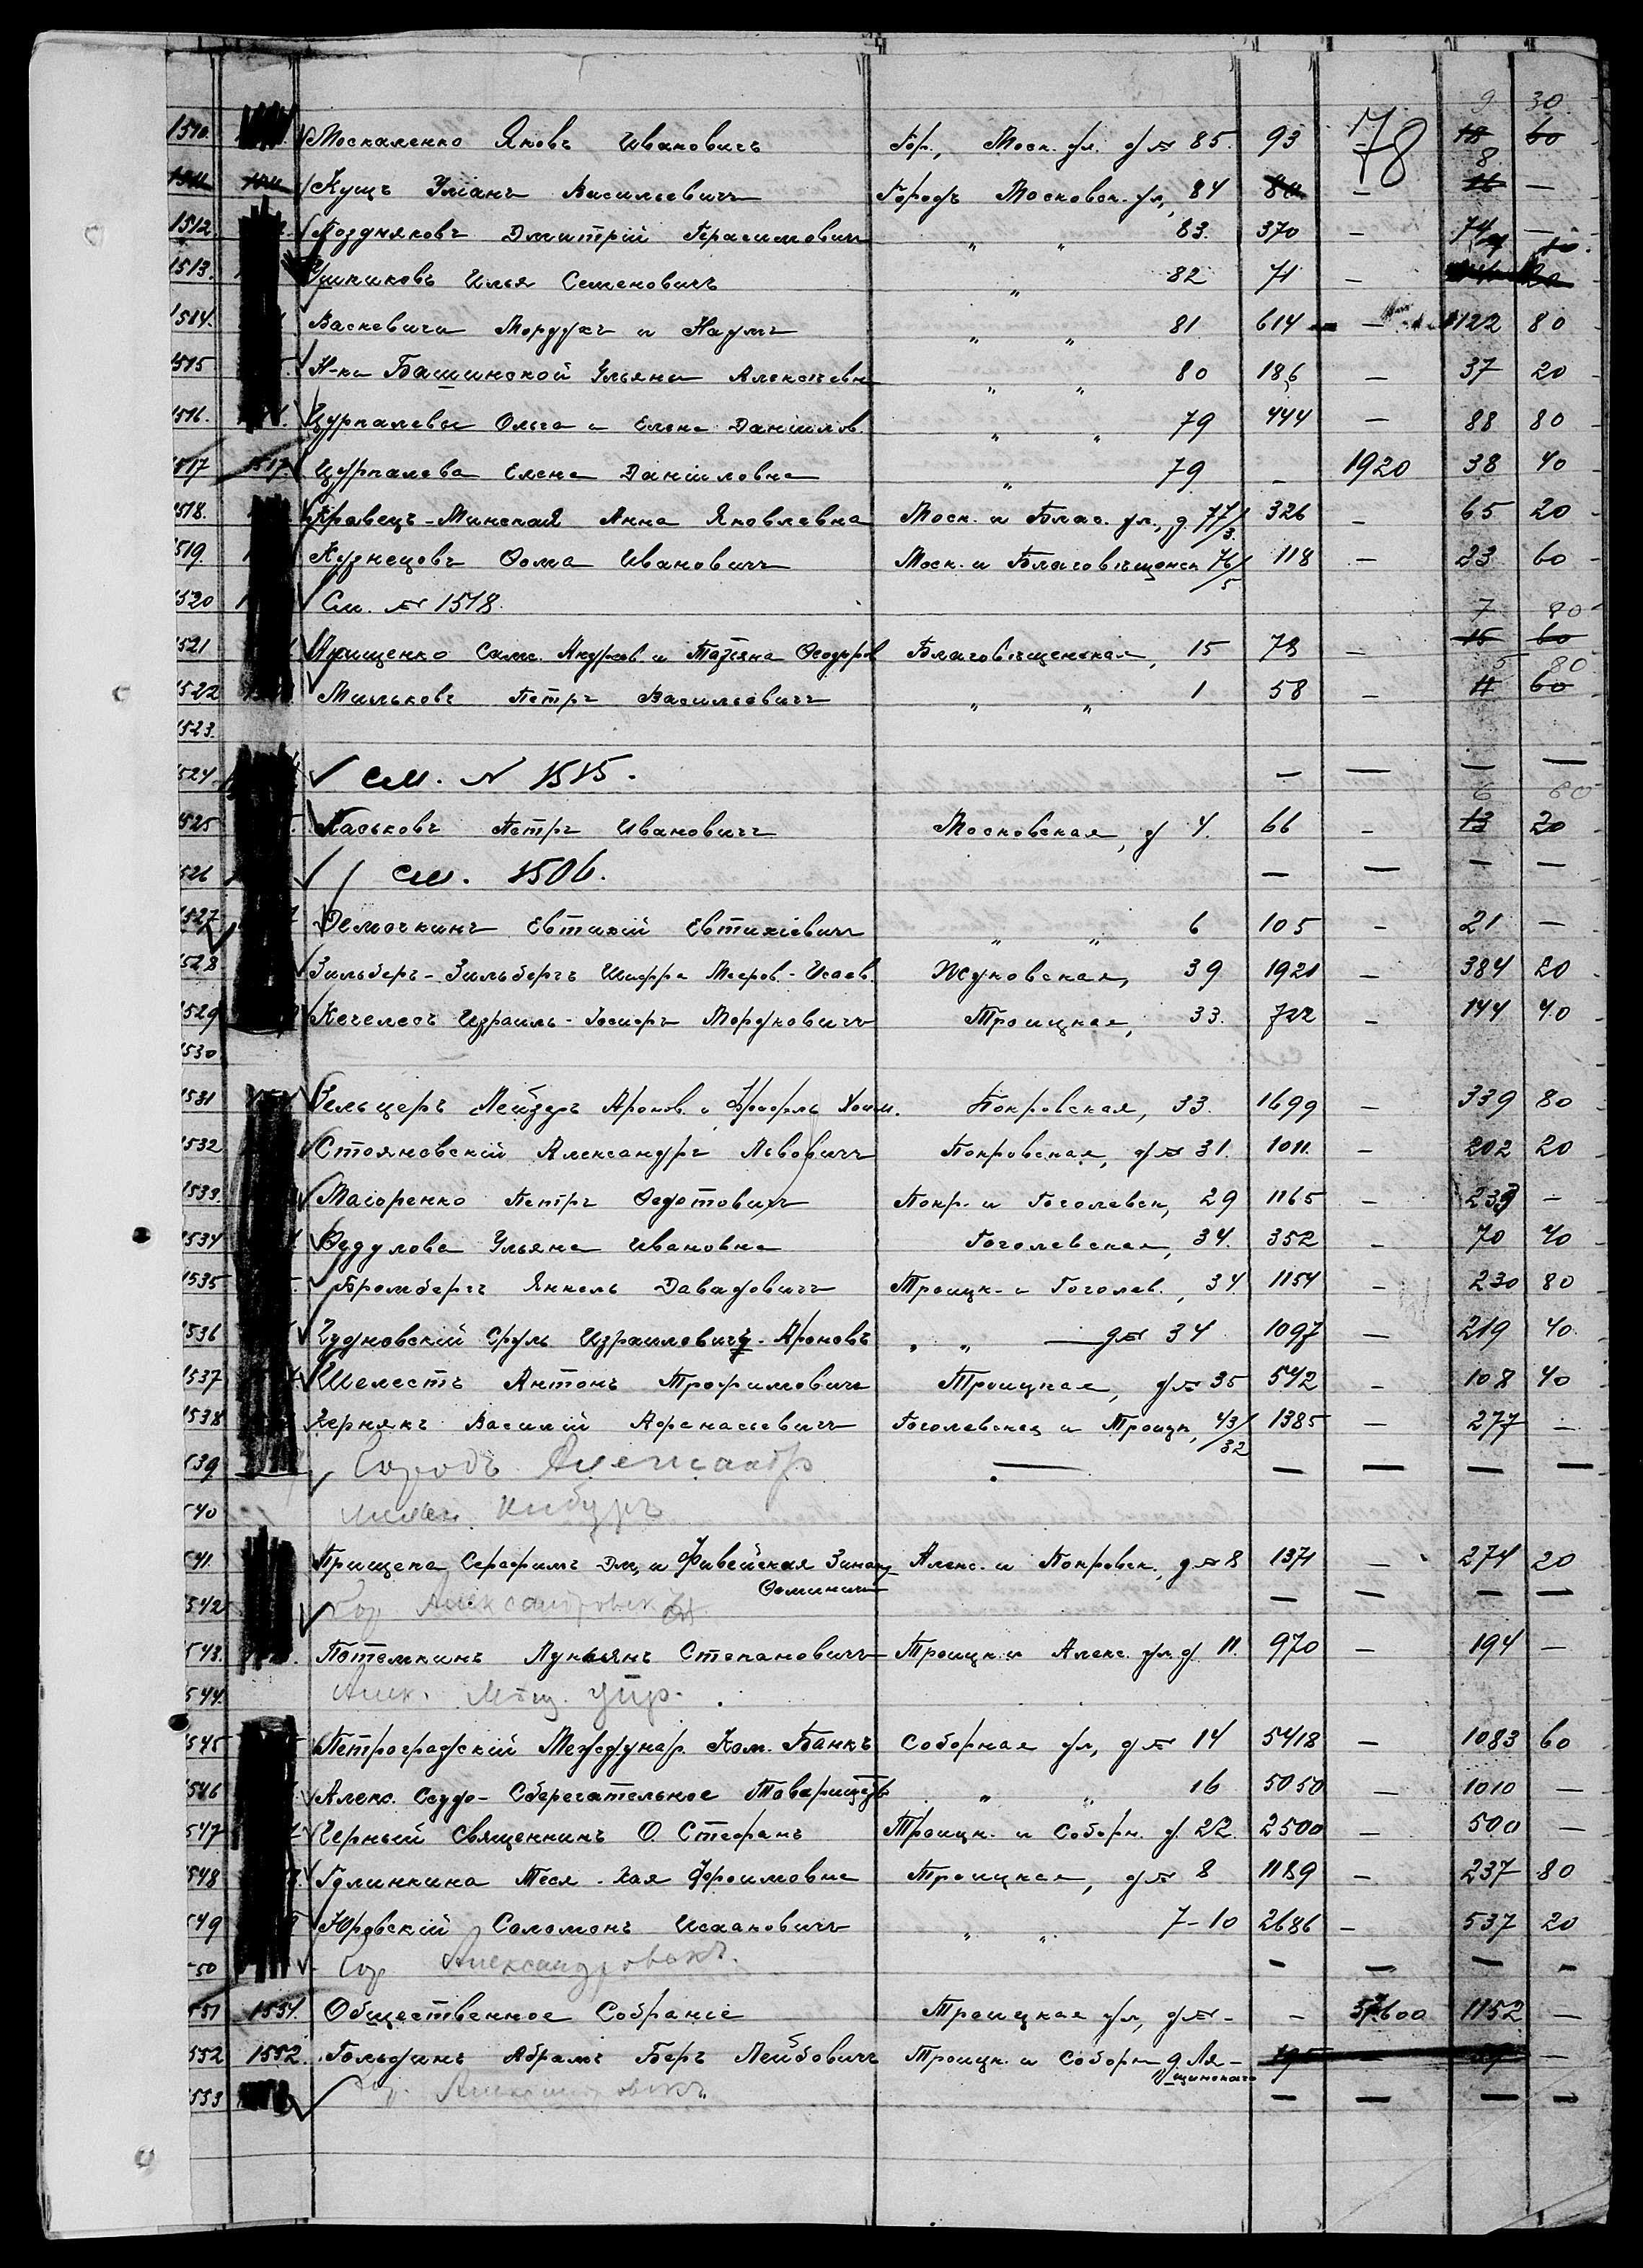 9 30
1510. Москаленко Яковъ Ивановичъ Гор., Моск. ул. д № 85. 93 78 18 60
8
1511 1511 Кущъ Уліанъ Васильевичъ Городъ Московск. ул, 84 80 — 16 —
1512. Поздняковъ Дмитрій Герасимовичъ " " 83. 370 — 74 —
1513. Ушкиковъ Илья Семеновичъ " 82 71 — 20
1514. Васкевичи Мордухъ и Наумъ " " 81 614 — 122 80
1515 Н-ки Башинской Ульяни Алексѣевн " " 80 186 — 37 20
1516. Цурпалевы Ольга и Елена Даніилов. " " 79 444 — 88 80
1517 1517. Цурпалева Елена Даніиловна " 79 — 1920 38 40
1518. Кравецъ-Минская Анна Яковлевна Моск. и Благ. ул., д 77/3. 326 — 65 20
1519. Кузнецовъ Ѳома Ивановичъ Моск. и Благовѣщенск 76/5 118 — 23 60
1520 См. № 1518.
7 80
1521 Ирищенко Сам. Андреев. и Татьяна Ѳеодоров Благовѣщенская, 15 78 — 15 60
5 80
1522 Мильковъ Петръ Васильевичъ " " 1 58 — 11 60
1523.
1524 см. N 1515. — — — —
6 80
1525 Паськовъ Петръ Ивановичъ Московская, д 4. 66 — 13 20
1526 см. 1506. — — — —
1527 Демочкинъ Евтихій Евтихіевичъ " " 6 105 — 21 —
1528 Зильберъ-Зильбергъ Шифра Мееров.-Исаев. Жуковская, 39 1921 — 384 20
1529 Кечелесъ Израиль-Іосифъ Мордковичъ Троицкая, 33. 722 — 144 40
1530
1531 Зельцеръ Лейзеръ Аронов. и Хаим. Покровская, 33. 1699 — 339 80
1532 Стояновскій Александръ Львовичъ Покровская, д № 31. 1011. — 202 20
1533. Магоренко Петръ Ѳедотовичъ Покр. и Гоголевск, 29 1165 — 233 —
1534 Ведулова Ульяна Ивановна Гоголевская, 34. 352 — 70 40
1535 Бромбергъ Янкель Давидовичъ Троицк. и Гоголев., 34. 1154 — 230 80
1536 Чудновскій Сруль Израилевичъ-Ароновъ " " — д № 34 1097 — 219 40.
1537 Шелестъ Антонъ Трофимовичъ Троицкая, д № 35 542 — 108 40
1538 Чернякъ Василій Афанасьевичъ Гоголевская и Троицк, 43/32 1385 — 277 —
539 Городъ Александр — — — — —
540
541. Прищепа Серафимъ Дм, и Фивейская Зинаид Ѳоминична Алекс. и Покровск., д № 8 1371 — 274 20
542 Гор. Александровск — — —
543. Потемкинъ Лукьянъ Степановичъ Троицк. и Алекс. ул. д. 11. 970 — 194 —
544. Алек. Мѣщ. упр.
545 Петроградскій Междунар. Ком. Банкъ Соборная ул, д № 14 5418 — 1083 60
546 Алекс. Ссудо-Сберегательное Товарищество " " 16 5050 — 1010 —
547 Черный Священникъ О. Стефанъ Троицк. и Соборн. д. 22. 2500 — 500 —
548 Голинкина Теся-Хая Фроимовна Троицкая, д № 8 1189 — 237 80
549 Юровскій Соломонъ Исааковичъ " " 7-10 2686 — 537 20
550 Гор Александровскъ. — — — —
551 1551. Общественное Собраніе Троицкая ул, д № — — 57600 1152 —
552 1552. Гольдинъ Абрамъ Беръ Лейбовичъ Троицк. и Соборн д. Лящинскаго 195 — —
553 Гор. Александровскъ — — — —